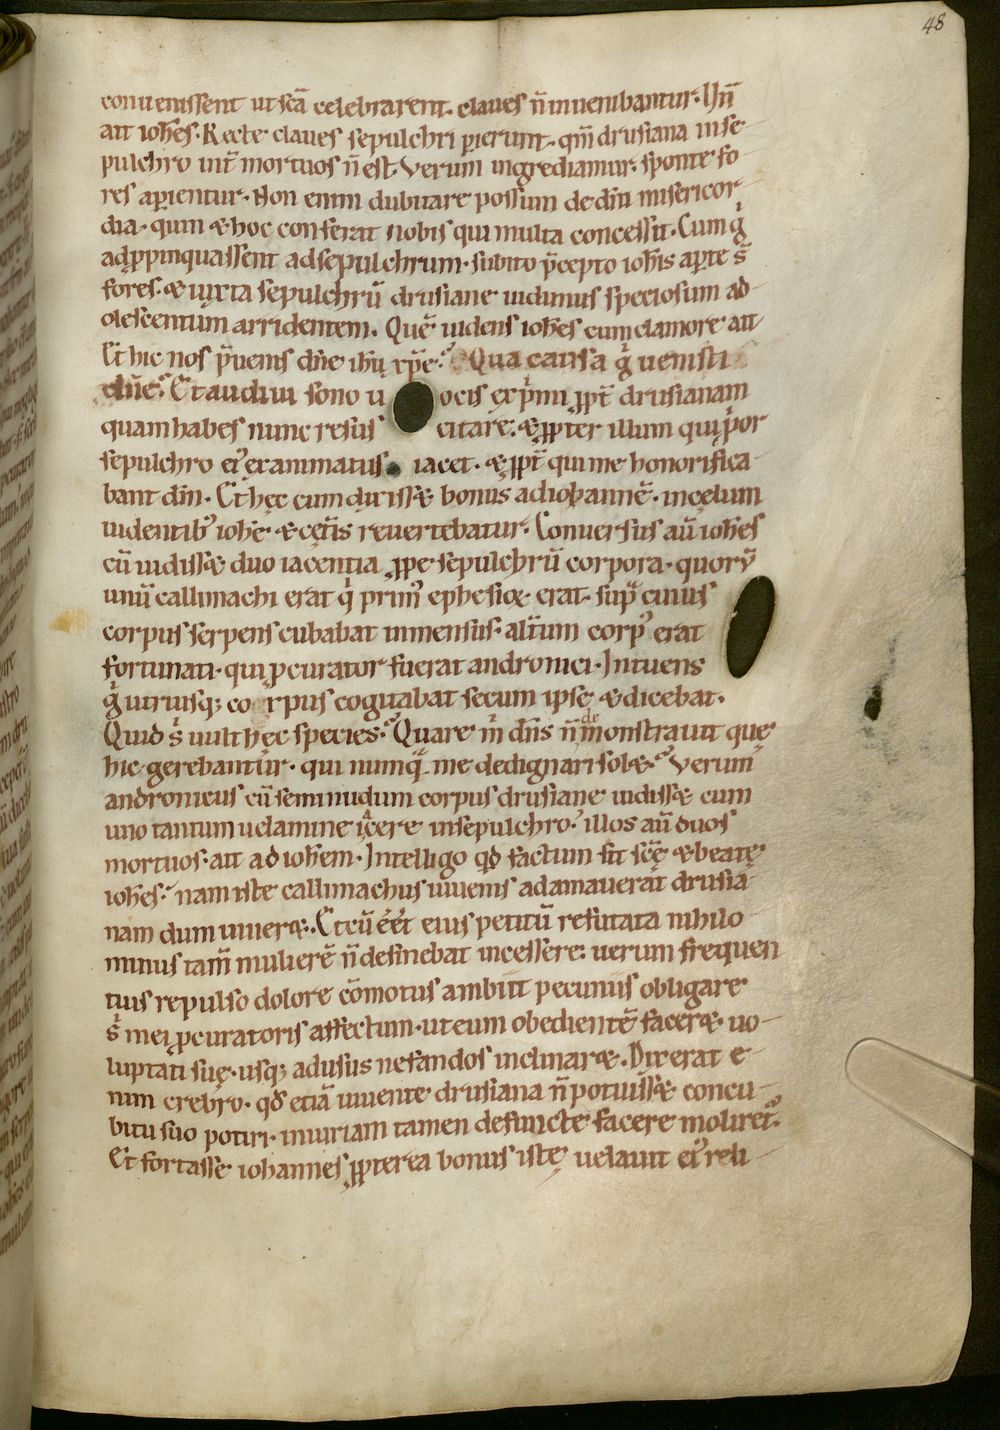 48
conuenissent ut sc̄a celebrarent. claues n̄ inueniebantur. Un̄
ait ioh̄es. Recte claues sepulchri perierunt. qm̄ drusiana in se
pulchro int̄ mortuos n̄ est. Verum ingrediamur. sponte fo
res aperientur. Non enim dubitare possum de dn̄i misericor
dia. quin & hoc conferat nobis qui multa concessit. Cum g̊
adꝓpinquassent ad sepulchrum. subito p̄cepto ioh̄is aperte s̄
fores. & iuxta sepulchrū drusiane uidimus speciosum ad
olescentum arridentem. Quē uidens ioh̄es cum clamore ait
Et hic nos p̄uenis dn̄e ih̄u xp̄e. Qua causa g̊ uenisti
dn̄e. Et audiui sono uocis exp̄mi ꝓpt̄ drusianam
quam habes nunc resuscitare. & ꝓpter illum qui ꝓpior
sepulchro ei᷒ exanimatus iacet. & ꝓpt̄ qui me honorifica
bant dn̄i. Et hec cum dixiss& bonus ad iohannē. in celum
uidentib᷒ ioh̄e & cet̄is reuertebatur. Conuersus aū ioh̄es
cū uidiss& duo iacentia ꝓpe sepulchrū corpora. quorū
unū callimachi erat qi prim᷒ ephesiox erat. sup̄ cuius
corpus serpens cubabat inmensus. alt̄um corp᷒ erat
fortunati. qui ꝓcurator fuerat andronici. Intuens
g̊ utriusq; corpus cogitabat secum ipse & dicebat.
Quid si uult hec species. Quare m̄ dn̄s n̄ demonstrauit que
hic gerebantur. qui numq̄ me dedignari sol&. Verum
andronicus cū seminudum corpus drusiane uidiss& cum
uno tantum uelamine iacere in sepulchro. illos aū duos
mortuos. ait ad ioh̄em. Intelligo qd̄ factum sit sc̄e & beate
ioh̄es. nam iste callimachus iuuenis adamauerat drusia
nam dum uiuer&. Et cū éét eius petitū refutata nihilo
minus tam̄ mulierē n̄ desinebat incessere. uerum frequen
tius repulso dolore cōmotus ambiit pecuniis obligare
s̄ mei ꝓcuratoris affectum. ut eum obedientē facer& uo
luptati sue. usq; ad usus nefandos inclinar&. Dixerat e
nim crebro. qd̄ etiā uiuente drusiana n̄ potuiss& concu
bitu suo potiri. iniuriam tamen defuncte facere moliret᷒.
Et fortasse iohannes ꝓpterea bonus iste uelauit ei᷒ reli